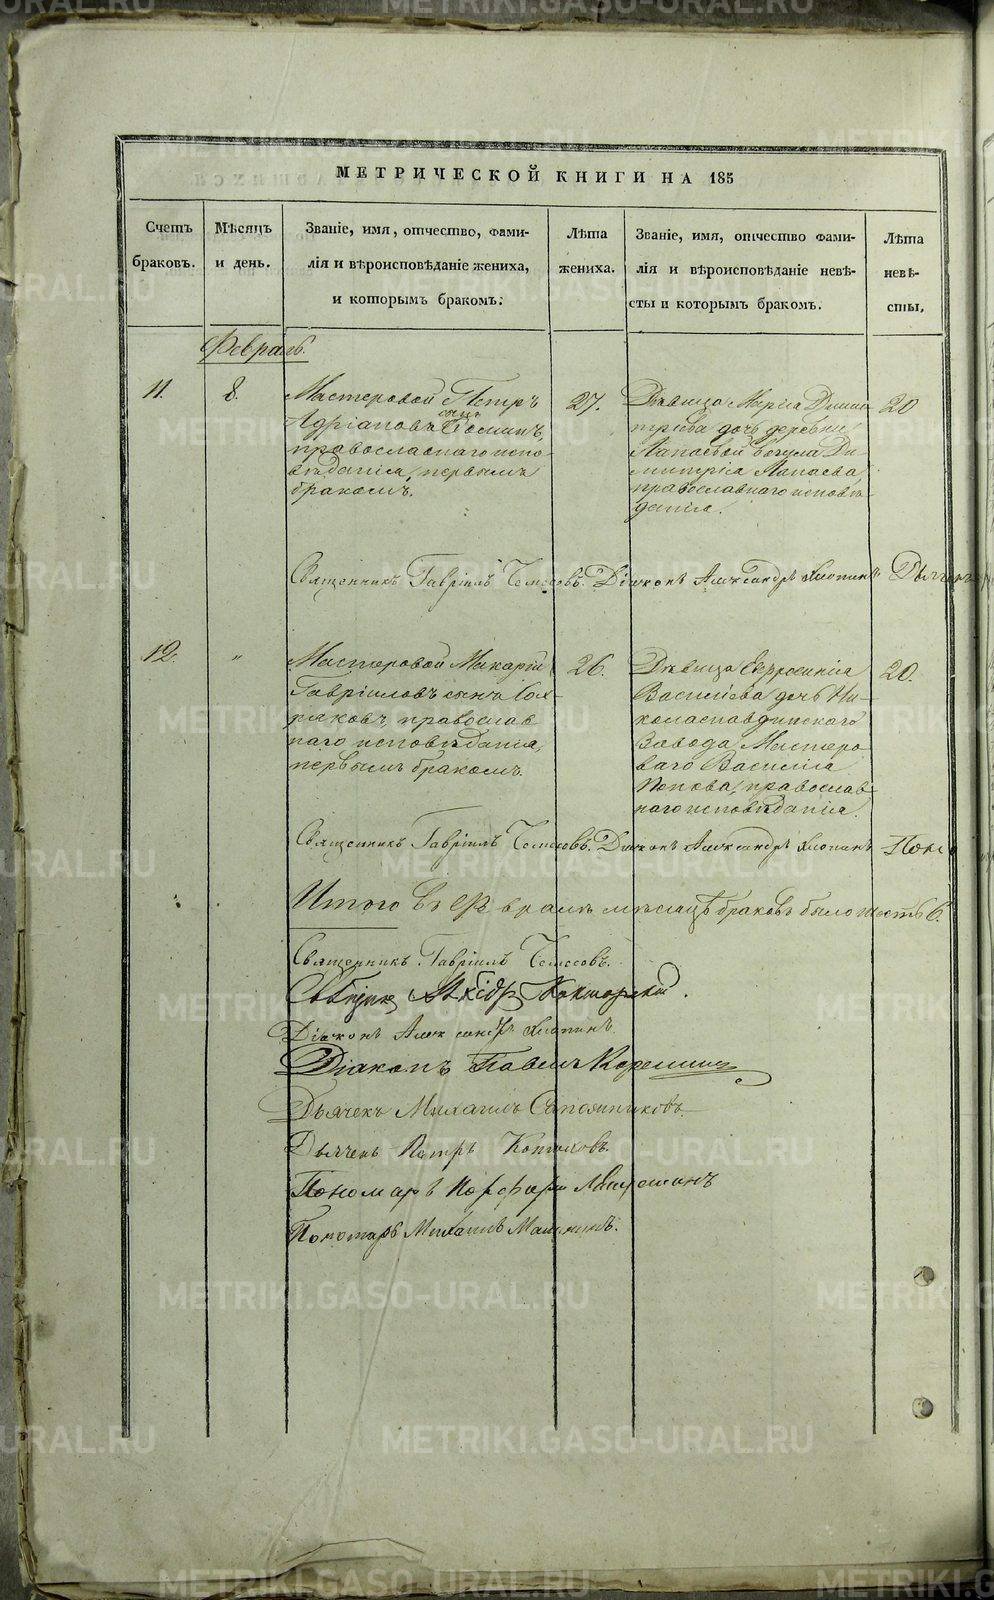 МЕТРИЧЕСКОЙ КНИГИ НА 185
Счетъ браковъ.
Мѣсяцъ и день.
Званіе, имя, отчество, фами-
лія и вѣроисповѣданіе жениха,
и которымъ бракомъ.
Лѣта жениха.
Званіе, имя, отчество фами-
лія и вѣроисповѣданіе невѣ-
сты и которымъ бракомъ.
Лѣта невѣ-
сты.
Февраль.
11.
8.
Мастеровой Петръ
Адріановъ сынъ
православнаго испо-
вѣданія, первымъ
бракомъ.
27.
Дѣвица Марія Дими
тріева дочь деревни
Лапаевой вогула Ди-
митрія Лапаева
православнаго исповѣ-
данія.
20
Священникъ Гавріилъ Діаконъ Александръ Хлопинъ
12.
"
Мастеровой Макарій
Гавріиловъ сынъ
православ
наго исповѣданія,
первымъ бракомъ.
26.
Дѣвица Евфросинія
Василіева дочь Ни-
колаепавдинскаго
Завода Мастеро
ваго Василія
Попова, православ-
наго исповѣданія.
20.
Священникъ Гавріилъ Діаконъ Александръ Хлопинъ Поно
Итого въ Февралѣ мѣсяцѣ браковъ было шесть 6.
Священникъ Гавріилъ
Діаконъ Александръ Хлопинъ
Діаконъ Павелъ
Дьячекъ Михаилъ Сапожниковъ
Дьячекъ Петръ
Пономарь Порфирій
Пономарь Михаилъ
METRIKI.GASO-URAL.RU